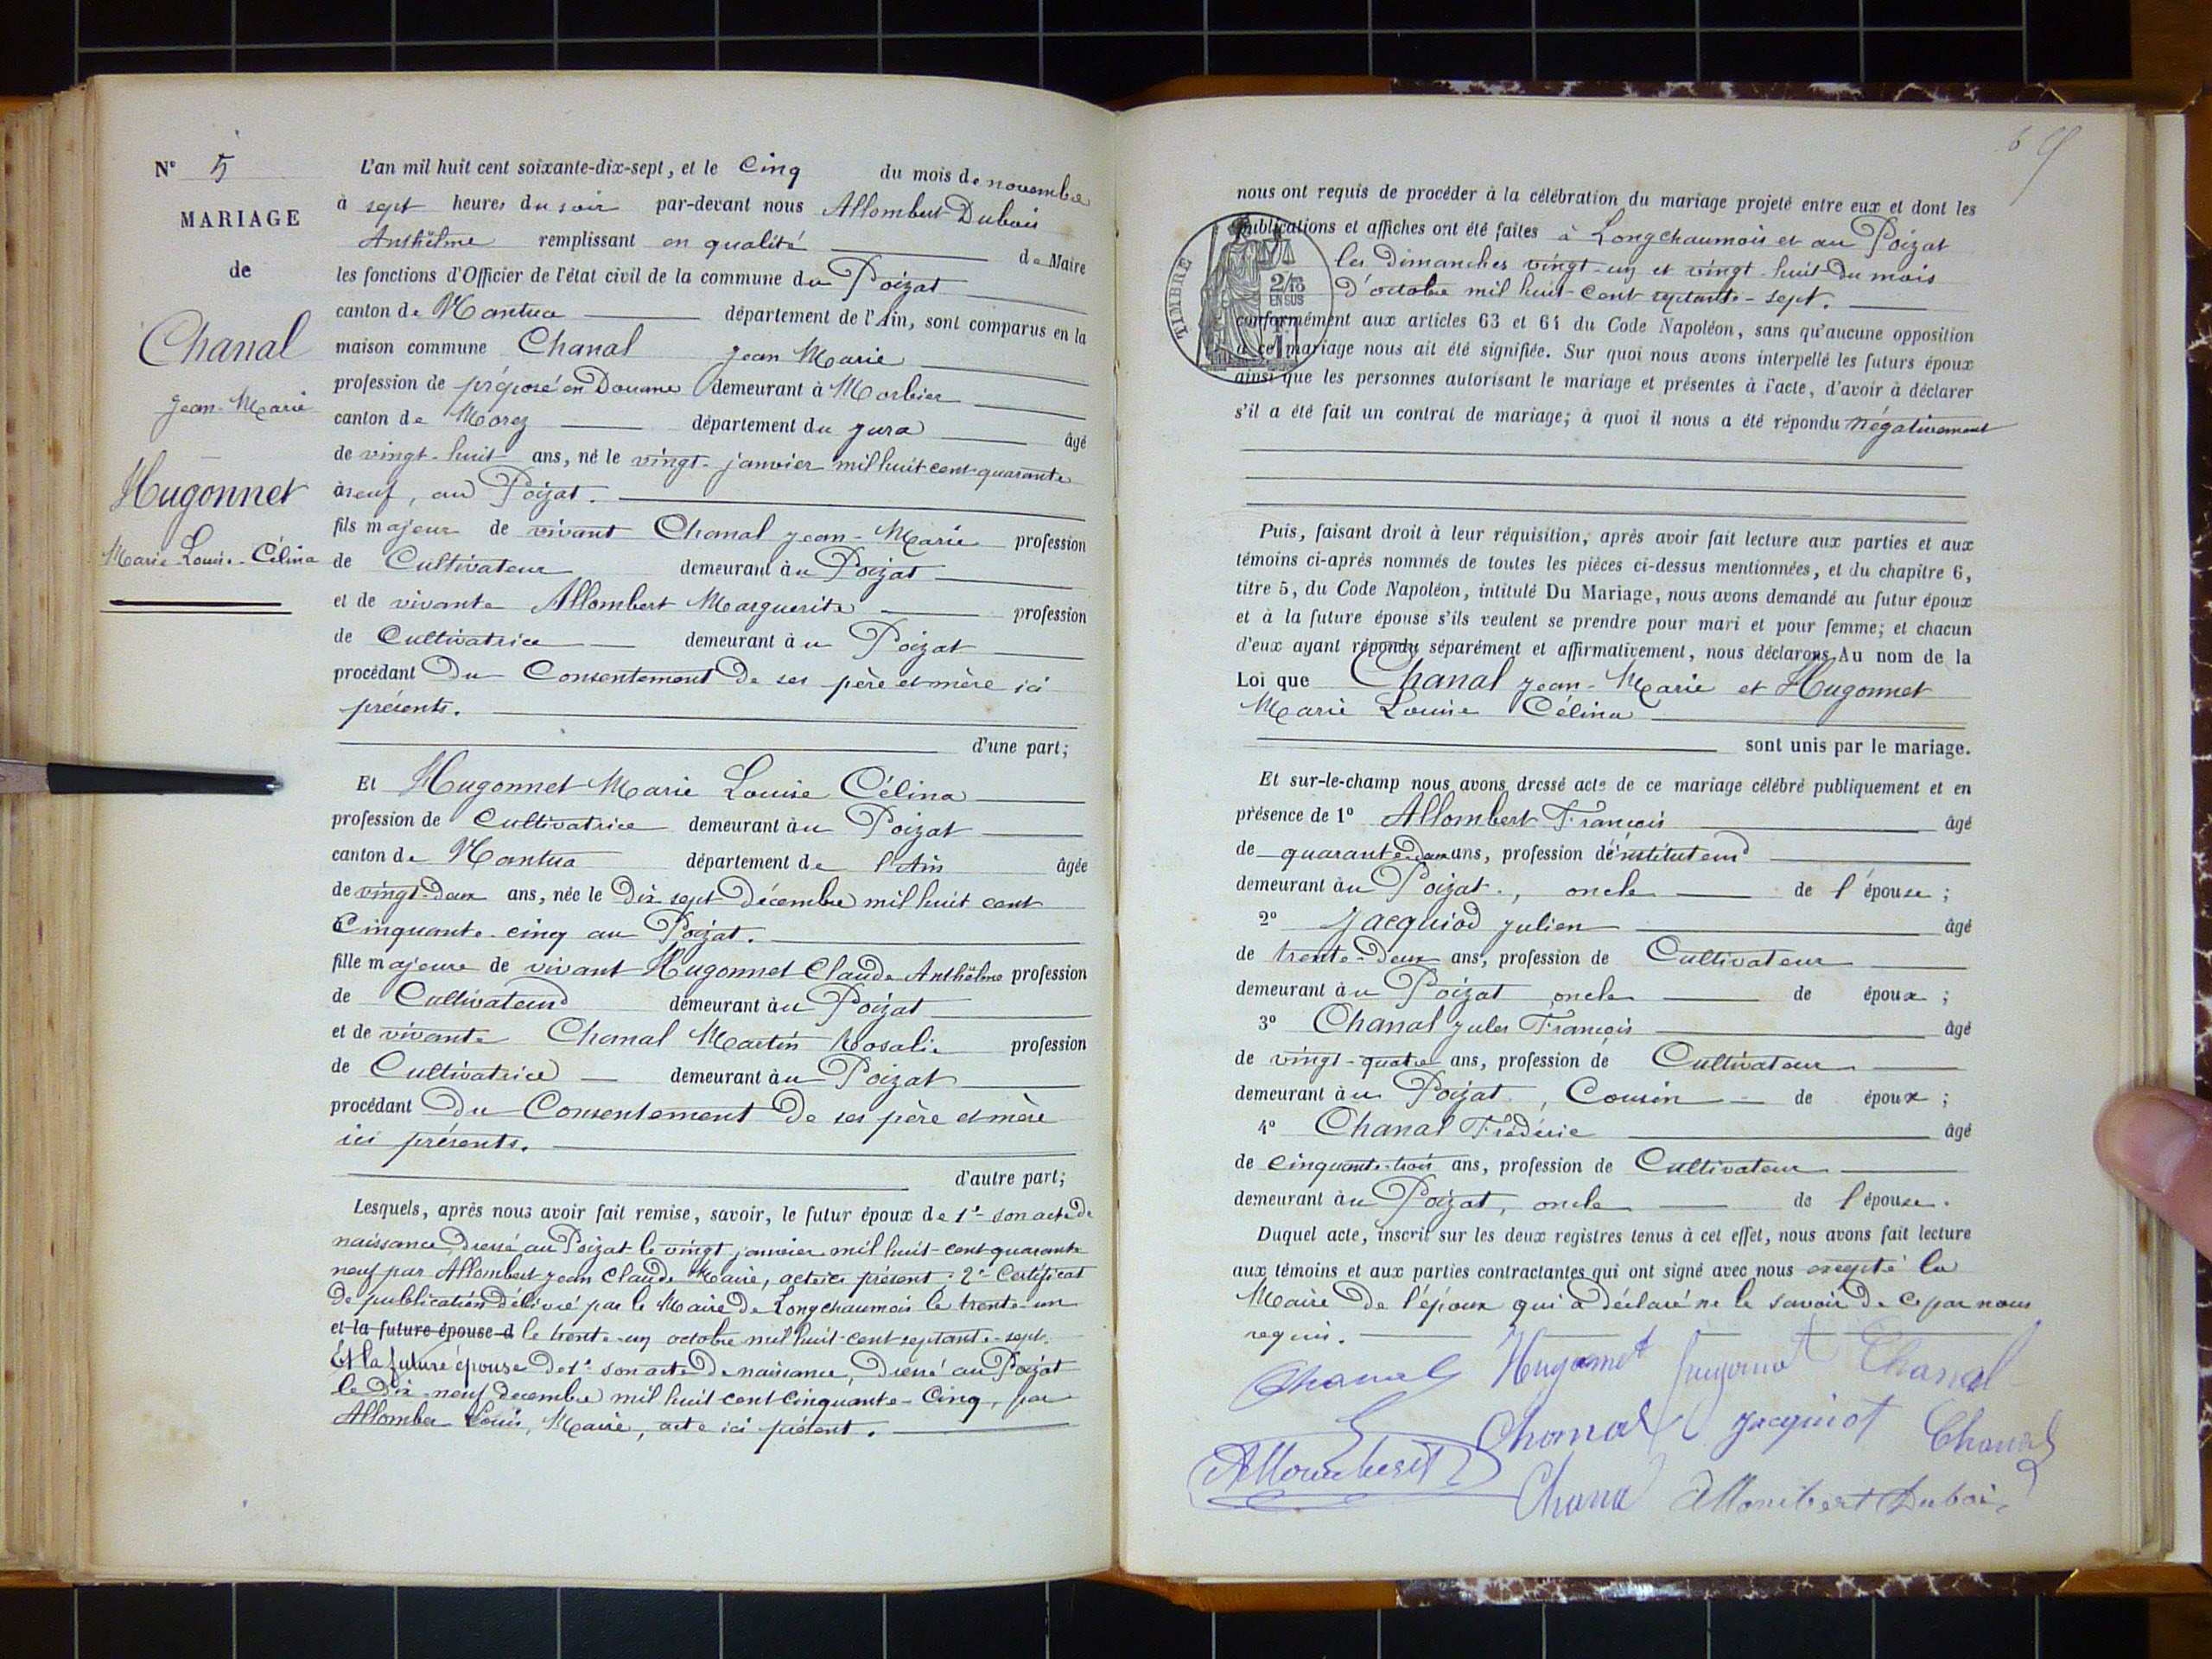 N° 5
MARIAGE
de
Chanal
Jean-Marie
Hugonnet
Marie-Louise-Célina
L'an mil huit cent soixante-dix-sept, et le cinq du mois de novembre
à sept heures du soir par-devant nous Allombert-Dubois
Anthelme remplissant en qualité de Maire
les fonctions d'Officier de l'état civil de la commune du Poizat
canton de Nantua département de l'Ain, sont comparus en la
maison commune Chanal Jean Marie
profession de préposé en Douane demeurant à Morbier
canton de Morez département du Jura âgé
de vingt-huit ans, né le vingt janvier mil huit cent quarante
neuf, au Poizat.
fils majeur de vivant Chanal Jean-Marie profession
de Cultivateur demeurant au Poizat
et de vivante Allombert Marguerite profession
de Cultivatrice demeurant au Poizat
procédant Du Consentement De ses père et mère ici
présents.
d'une part;
Et Hugonnet Marie Louise Célina
profession de Cultivatrice demeurant au Poizat
canton de Nantua département de l'Ain âgée
de vingt-deux ans, née le Dix sept Décembre mil huit cent
Cinquante-cinq au Poizat.
fille majeure de vivant Hugonnet Claude Anthelme profession
de Cultivateur demeurant au Poizat
et de vivante Chanal Martin Rosalie profession
de Cultivatrice demeurant au Poizat
procédant Du Consentement De ses père et mère
ici présents.
d'autre part;
Lesquels, après nous avoir fait remise, savoir, le futur époux de 1° son acte De
naissance, Dressé au Poizat le vingt janvier mil huit-cent quarante
neuf par Allombert Jean Claude Maire, acte ici présent; 2° Certificat
De publication Délivré par le Maire De Longchaumois le trente-un
et la future épouse d le trente-un octobre mil huit-cent septante-sept.
Et la future épouse De 1° son acte De naissance, Dressé au Poizat
le Dix-neuf decembre mil huit cent Cinquante-Cinq, par
Allomber Louis, Maire, acte ici présent.
69
nous ont requis de procéder à la célébration du mariage projeté entre eux et dont les
publications et affiches ont été faites à Longchaumois et au Poizat
les Dimanches vingt-un et vingt-huit Du mois
D'octobre mil huit-cent septante-sept.
TIMBRE
2/10
EN SUS
conformément aux articles 63 et 64 du Code Napoléon, sans qu'aucune opposition
à ce mariage nous ait été signifiée. Sur quoi nous avons interpellé les futurs époux
ainsi que les personnes autorisant le mariage et présentes à l'acte, d'avoir à déclarer
s'il a été fait un contrat de mariage; à quoi il nous a été répondu négativement
Puis, faisant droit à leur réquisition, après avoir fait lecture aux parties et aux
témoins ci-après nommés de toutes les pièces ci-dessus mentionnées, et du chapitre 6,
titre 5, du Code Napoléon, intitulé Du Mariage, nous avons demandé au futur époux
et à la future épouse s'ils veulent se prendre pour mari et pour femme; et chacun
d'eux ayant répondu séparément et affirmativement, nous déclarons Au nom de la
Loi que Chanal Jean-Marie et Hugonnet
Marie Louise Célina
sont unis par le mariage.
Et sur-le-champ nous avons dressé acte de ce mariage célébré publiquement et en
présence de 1° Allombert François âgé
de quarante-deux ans, profession d'instituteur
demeurant au Poizat, oncle de l'épouse;
2° Jacquiod Julien âgé
de trente-Deux ans, profession de Cultivateur
demeurant au Poizat oncle de époux;
3° Chanal Jules François âgé
de vingt-quatre ans, profession de Cultivateur
demeurant au Poizat, Cousin de époux;
4° Chanal Frédéric âgé
de cinquante-trois ans, profession de Cultivateur
demeurant au Poizat, oncle de l'épouse.
Duquel acte, inscrit sur les deux registres tenus à cet effet, nous avons fait lecture
aux témoins et aux parties contractantes qui ont signé avec nous excepté la
Maire De l'époux qui a déclaré ne le savoir De ce par nous
requis.
Chanal Hugonnet Hugonnet Chanal
Chanal Jacquiot Chanal
Allombert Chanal Allombert Dubois